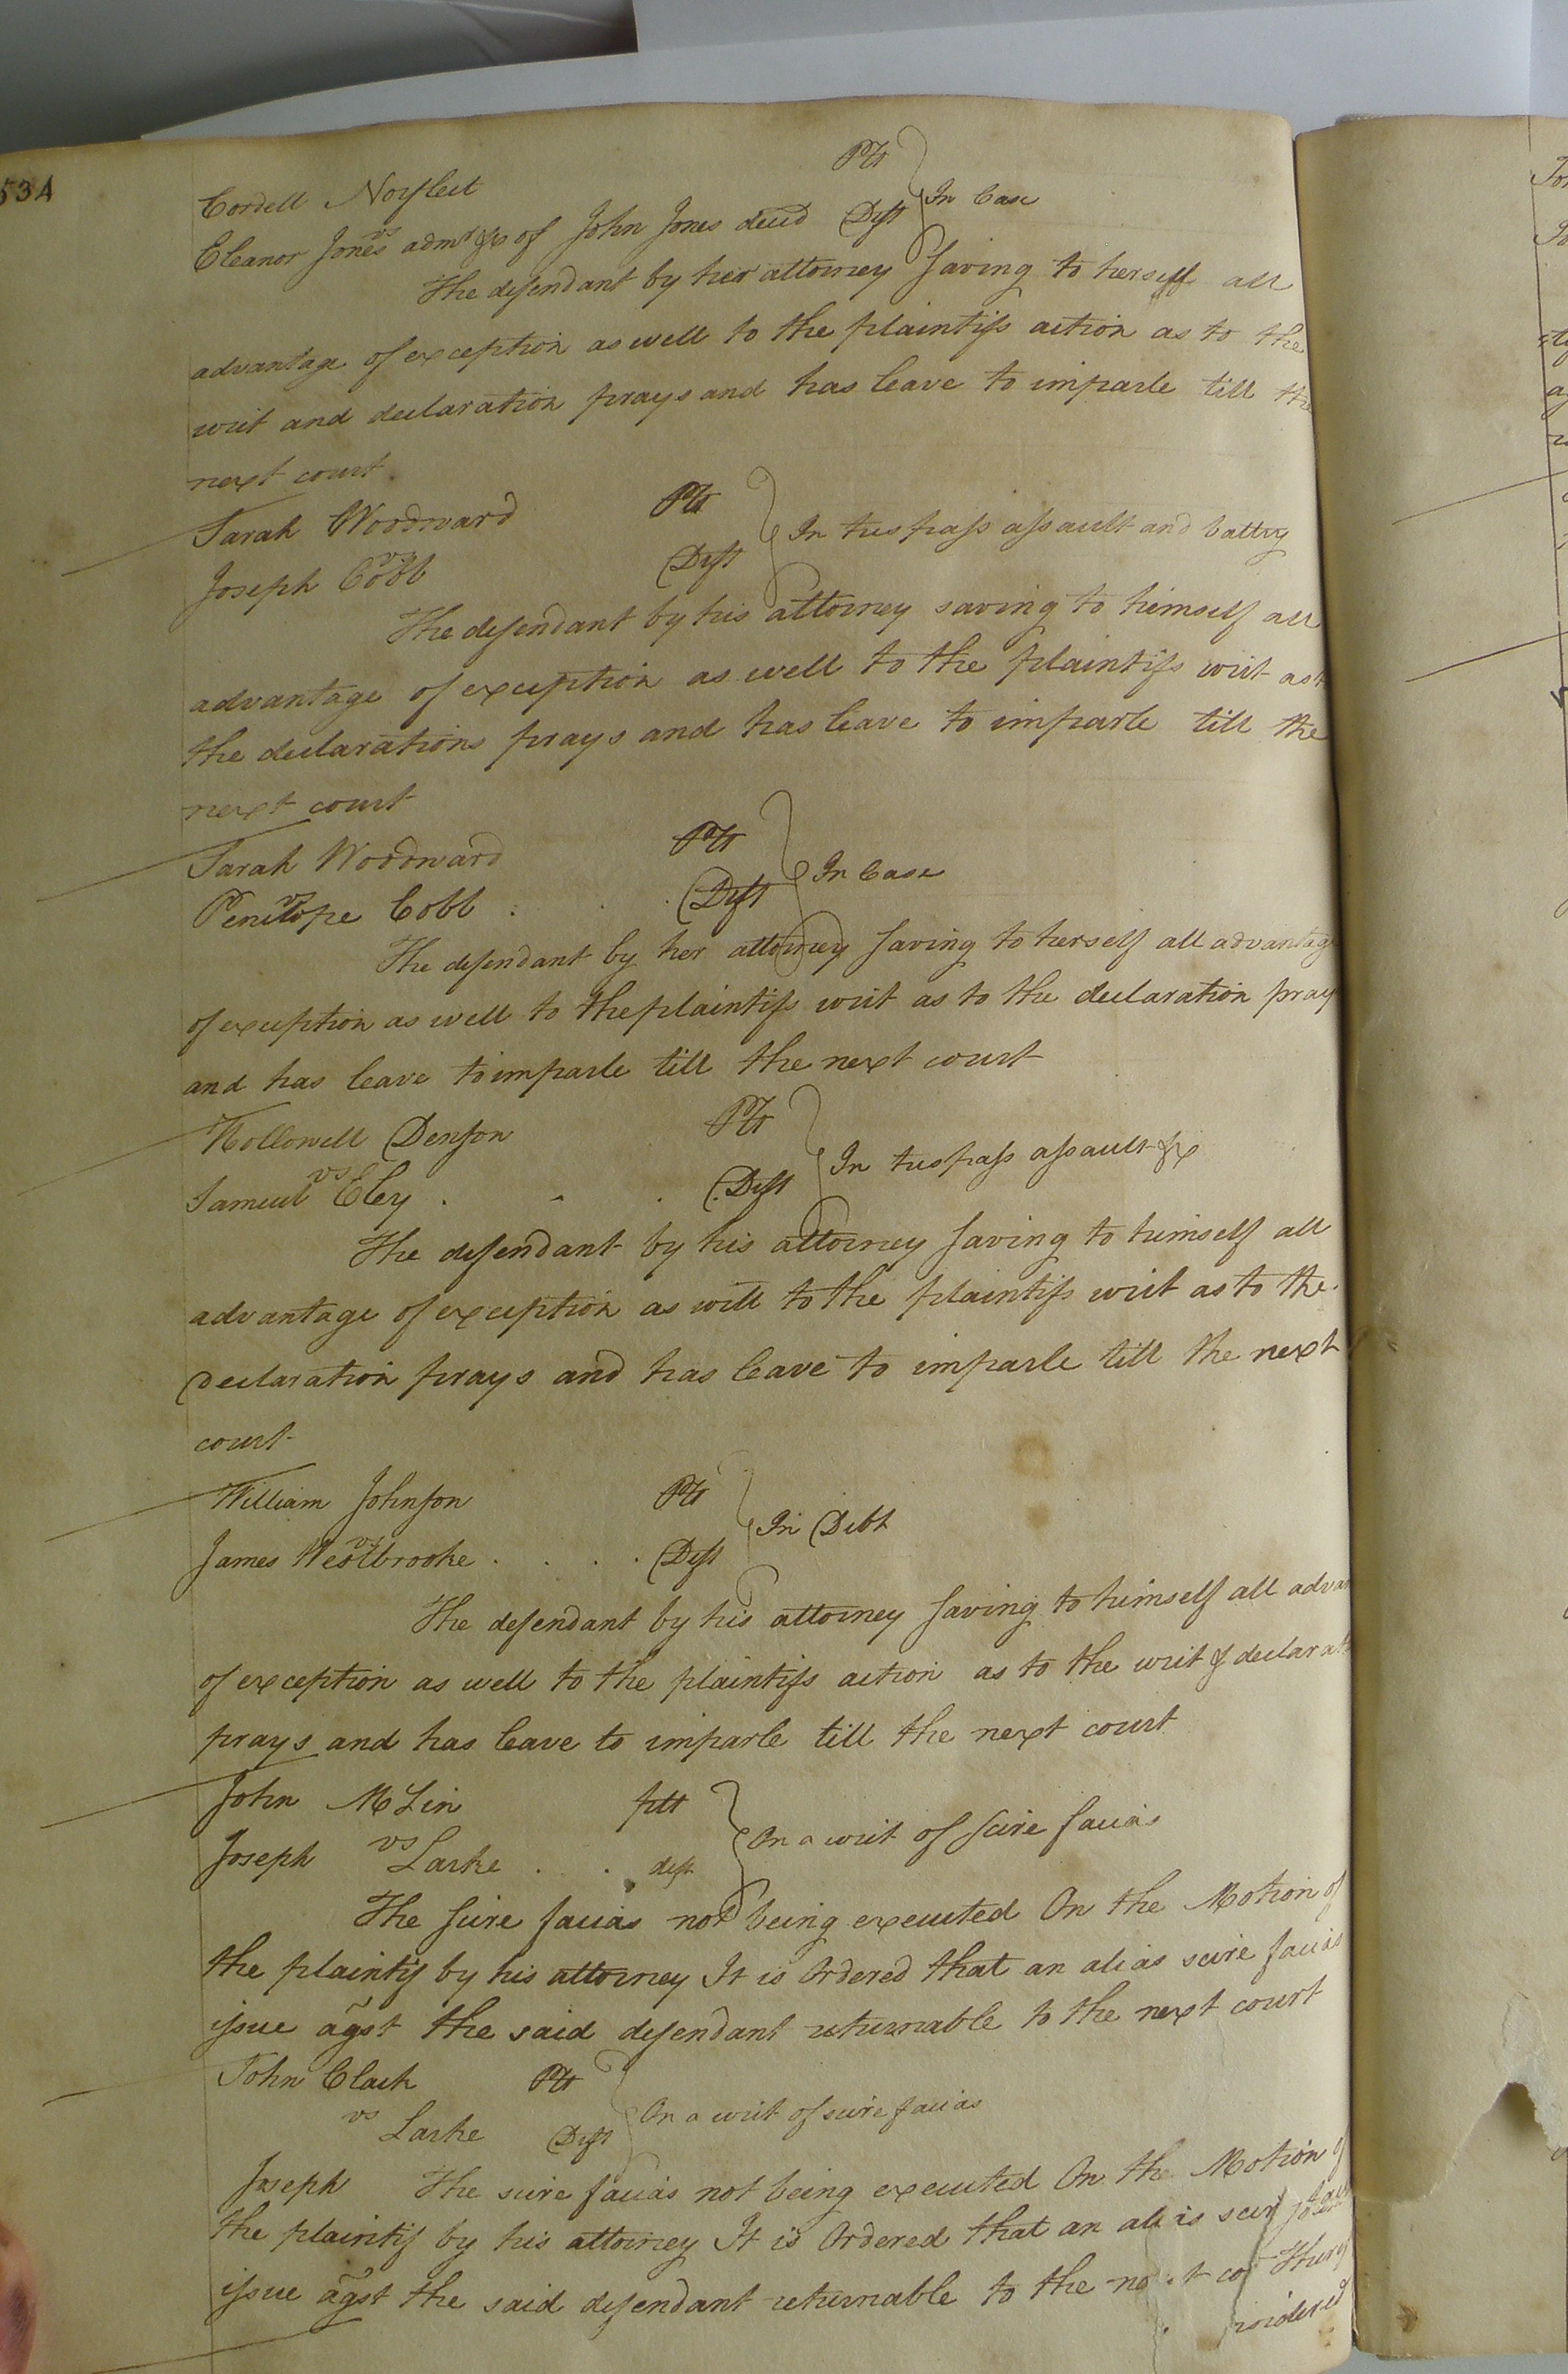 534
Cordell Norfleet Plt
vs In Case
Eleanor Jones admr &c of John Jones decd Deft
The defendant by her attorney saving to herself all
advantage of exception as well to the plaintifs action as to the
writ and declaration prays and has leave to imparle till the
next court
Sarah Woodward Plt
vs In trespass assault and battry
Joseph Cobb Deft
The defendant by his attorney saving to himself all
advantage of exception as well to the plaintifs writ as t
the declarations prays and has leave to imparle till the
next court
Sarah Woodward Plt
vs In Case
Penelope Cobb Deft
The defendant by her attorney saving to herself all advantage
of exception as well to the plaintifs writ as to the declaration pray
and has leave to imparle till the next court
Hollowell Denson Plt
vs In trespass assault &c
Samuel Eley Deft
The defendant by his attorney saving to himself all
advantage of exception as well to the plaintifs writ as to the
declaration prays and has leave to imparle till the next
court
William Johnson Plt
vs In Debt
James Westbrooke Deft
The defendant by his attorney saving to himself all advan
of exception as well to the plaintifs action as to the writ & declarat
prays and has leave to imparle till the next court
John McLin plt
vs On a writ of scire facias
Joseph Larke deft
The scire facias not being executed On the Motion of
the plaintif by his attorney It is Ordered that an alias scire facias
issue agst the said defendant returnable to the next court
John Clark Plt
vs On a writ of scire facias
Larke Deft
Joseph The scire facias not being executed On the Motion of
the plaintif by his attorney It is Ordered that an alias scire
issue agst the said defendant returnable to the next